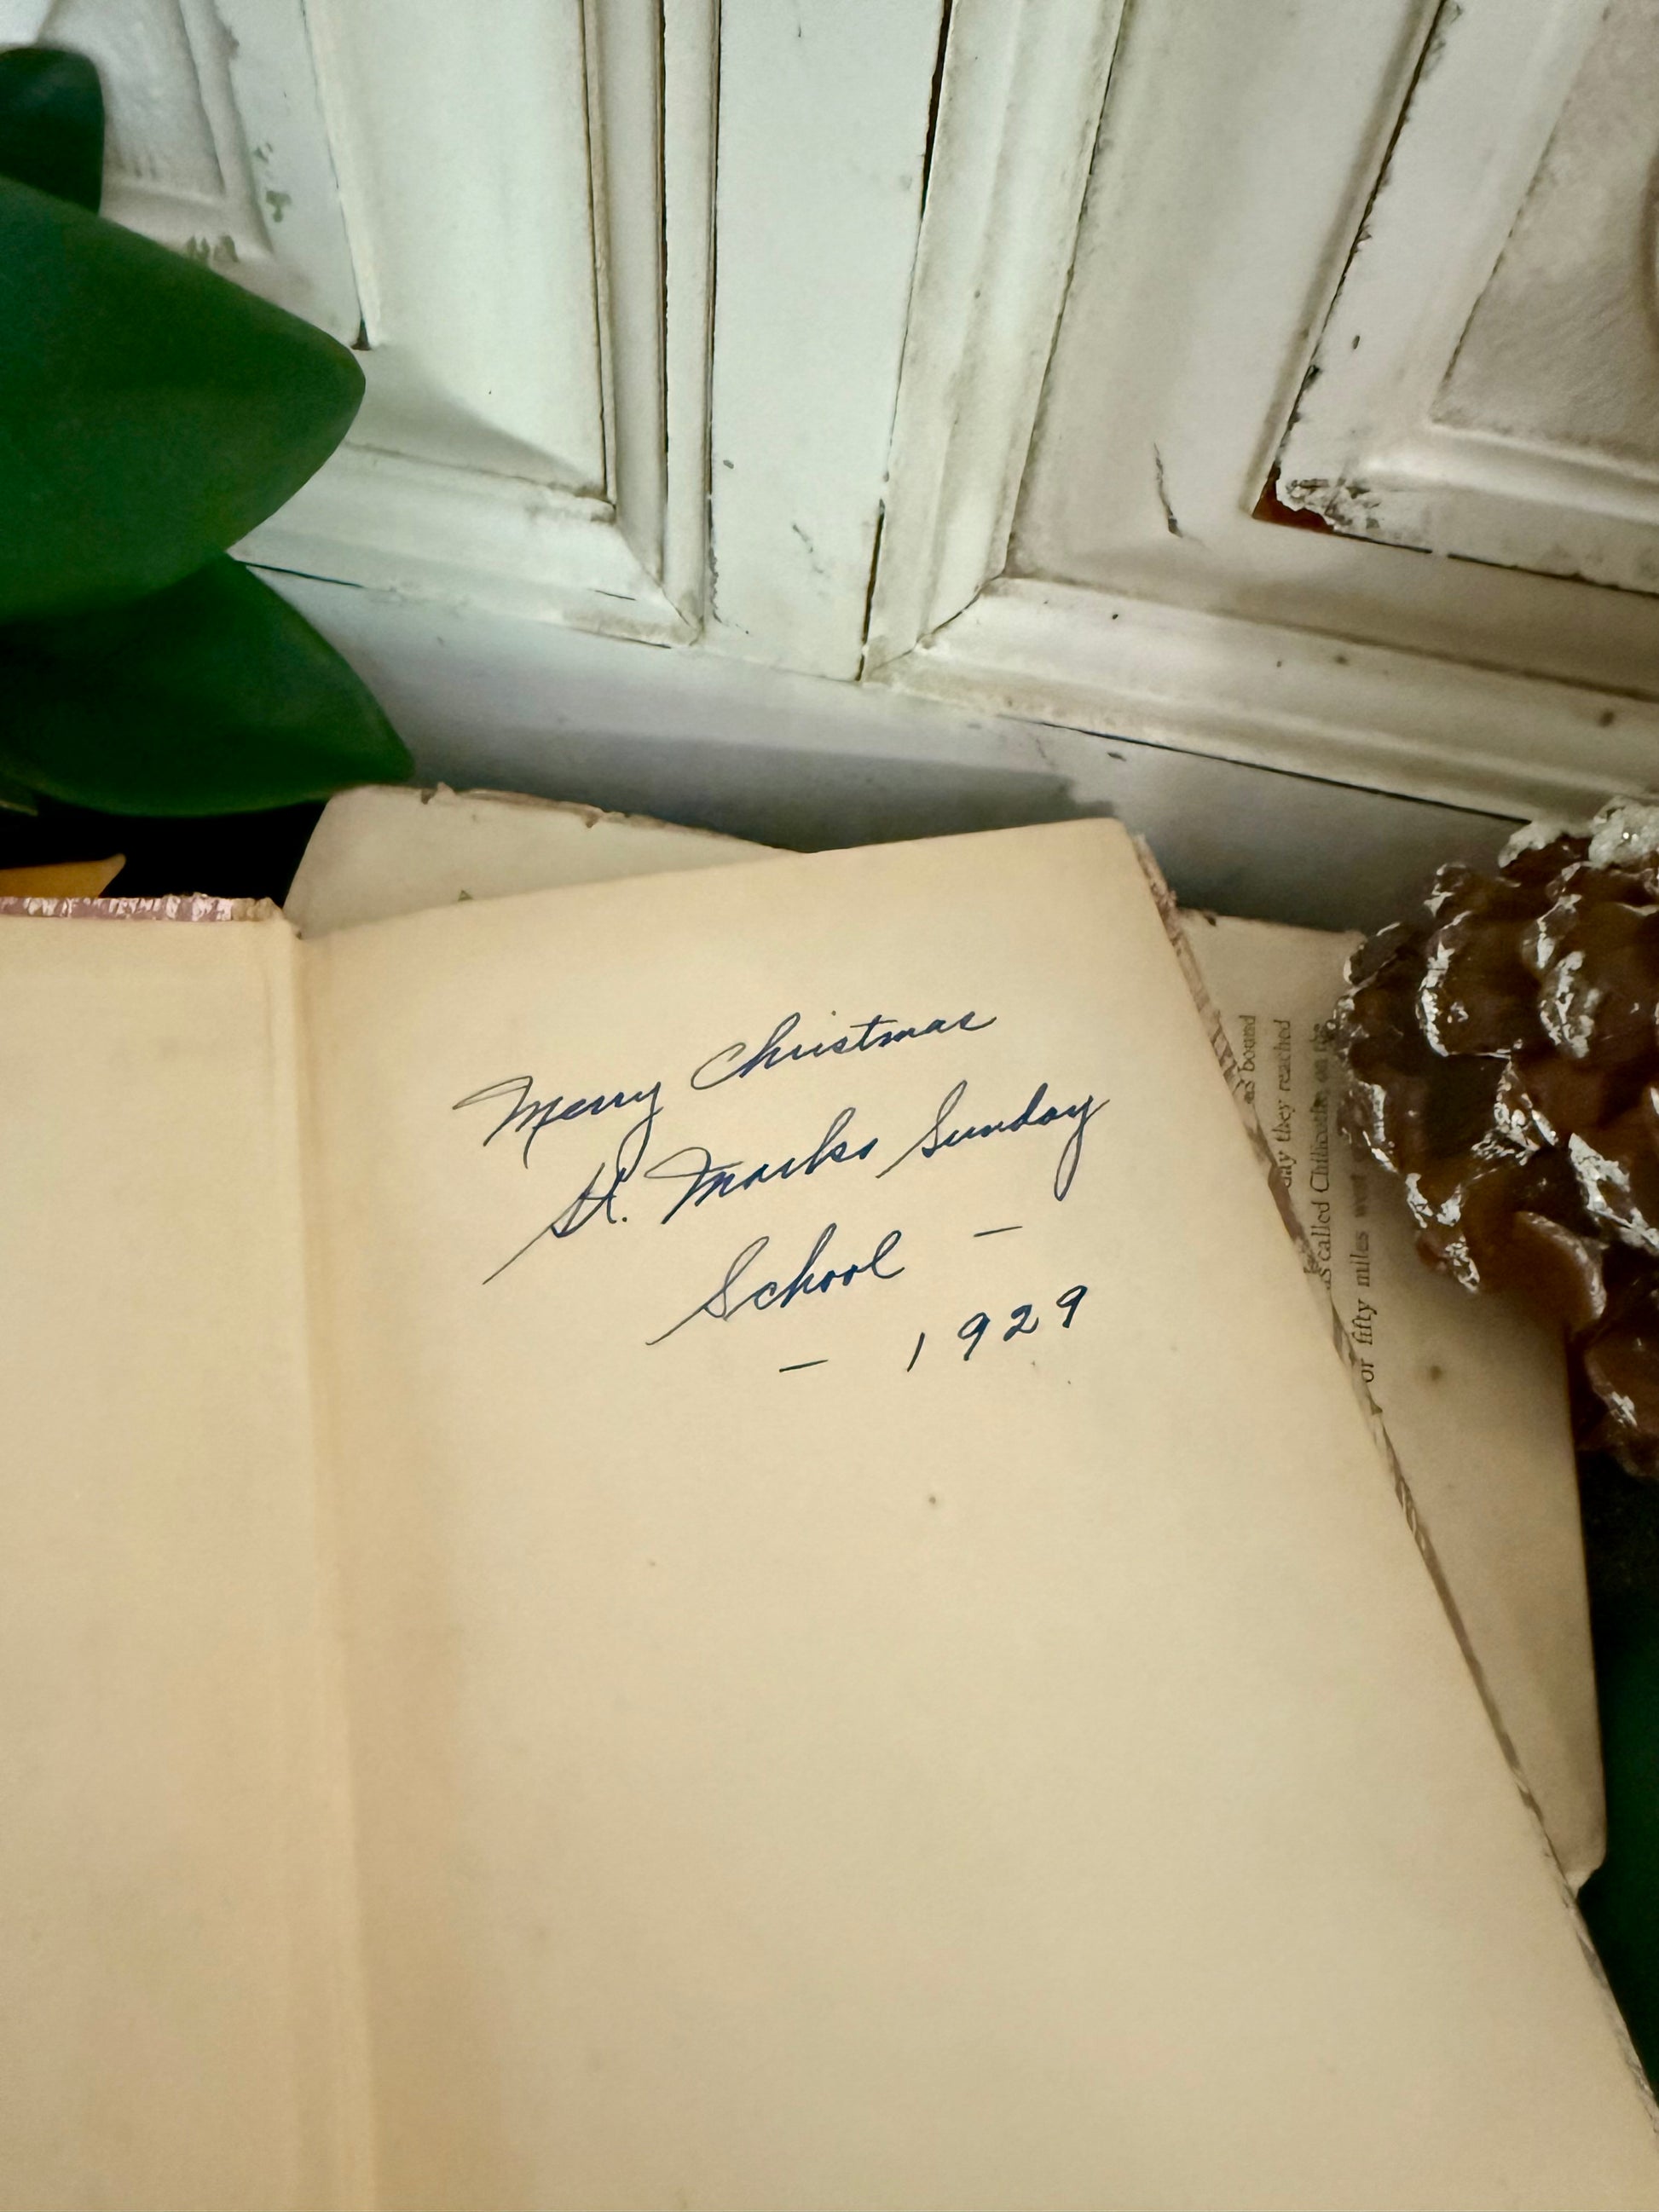 Merry Christmas
St. Marks Sunday
School —
— 1929
bound
day they reached
called Chillicothe, on the
or fifty miles west